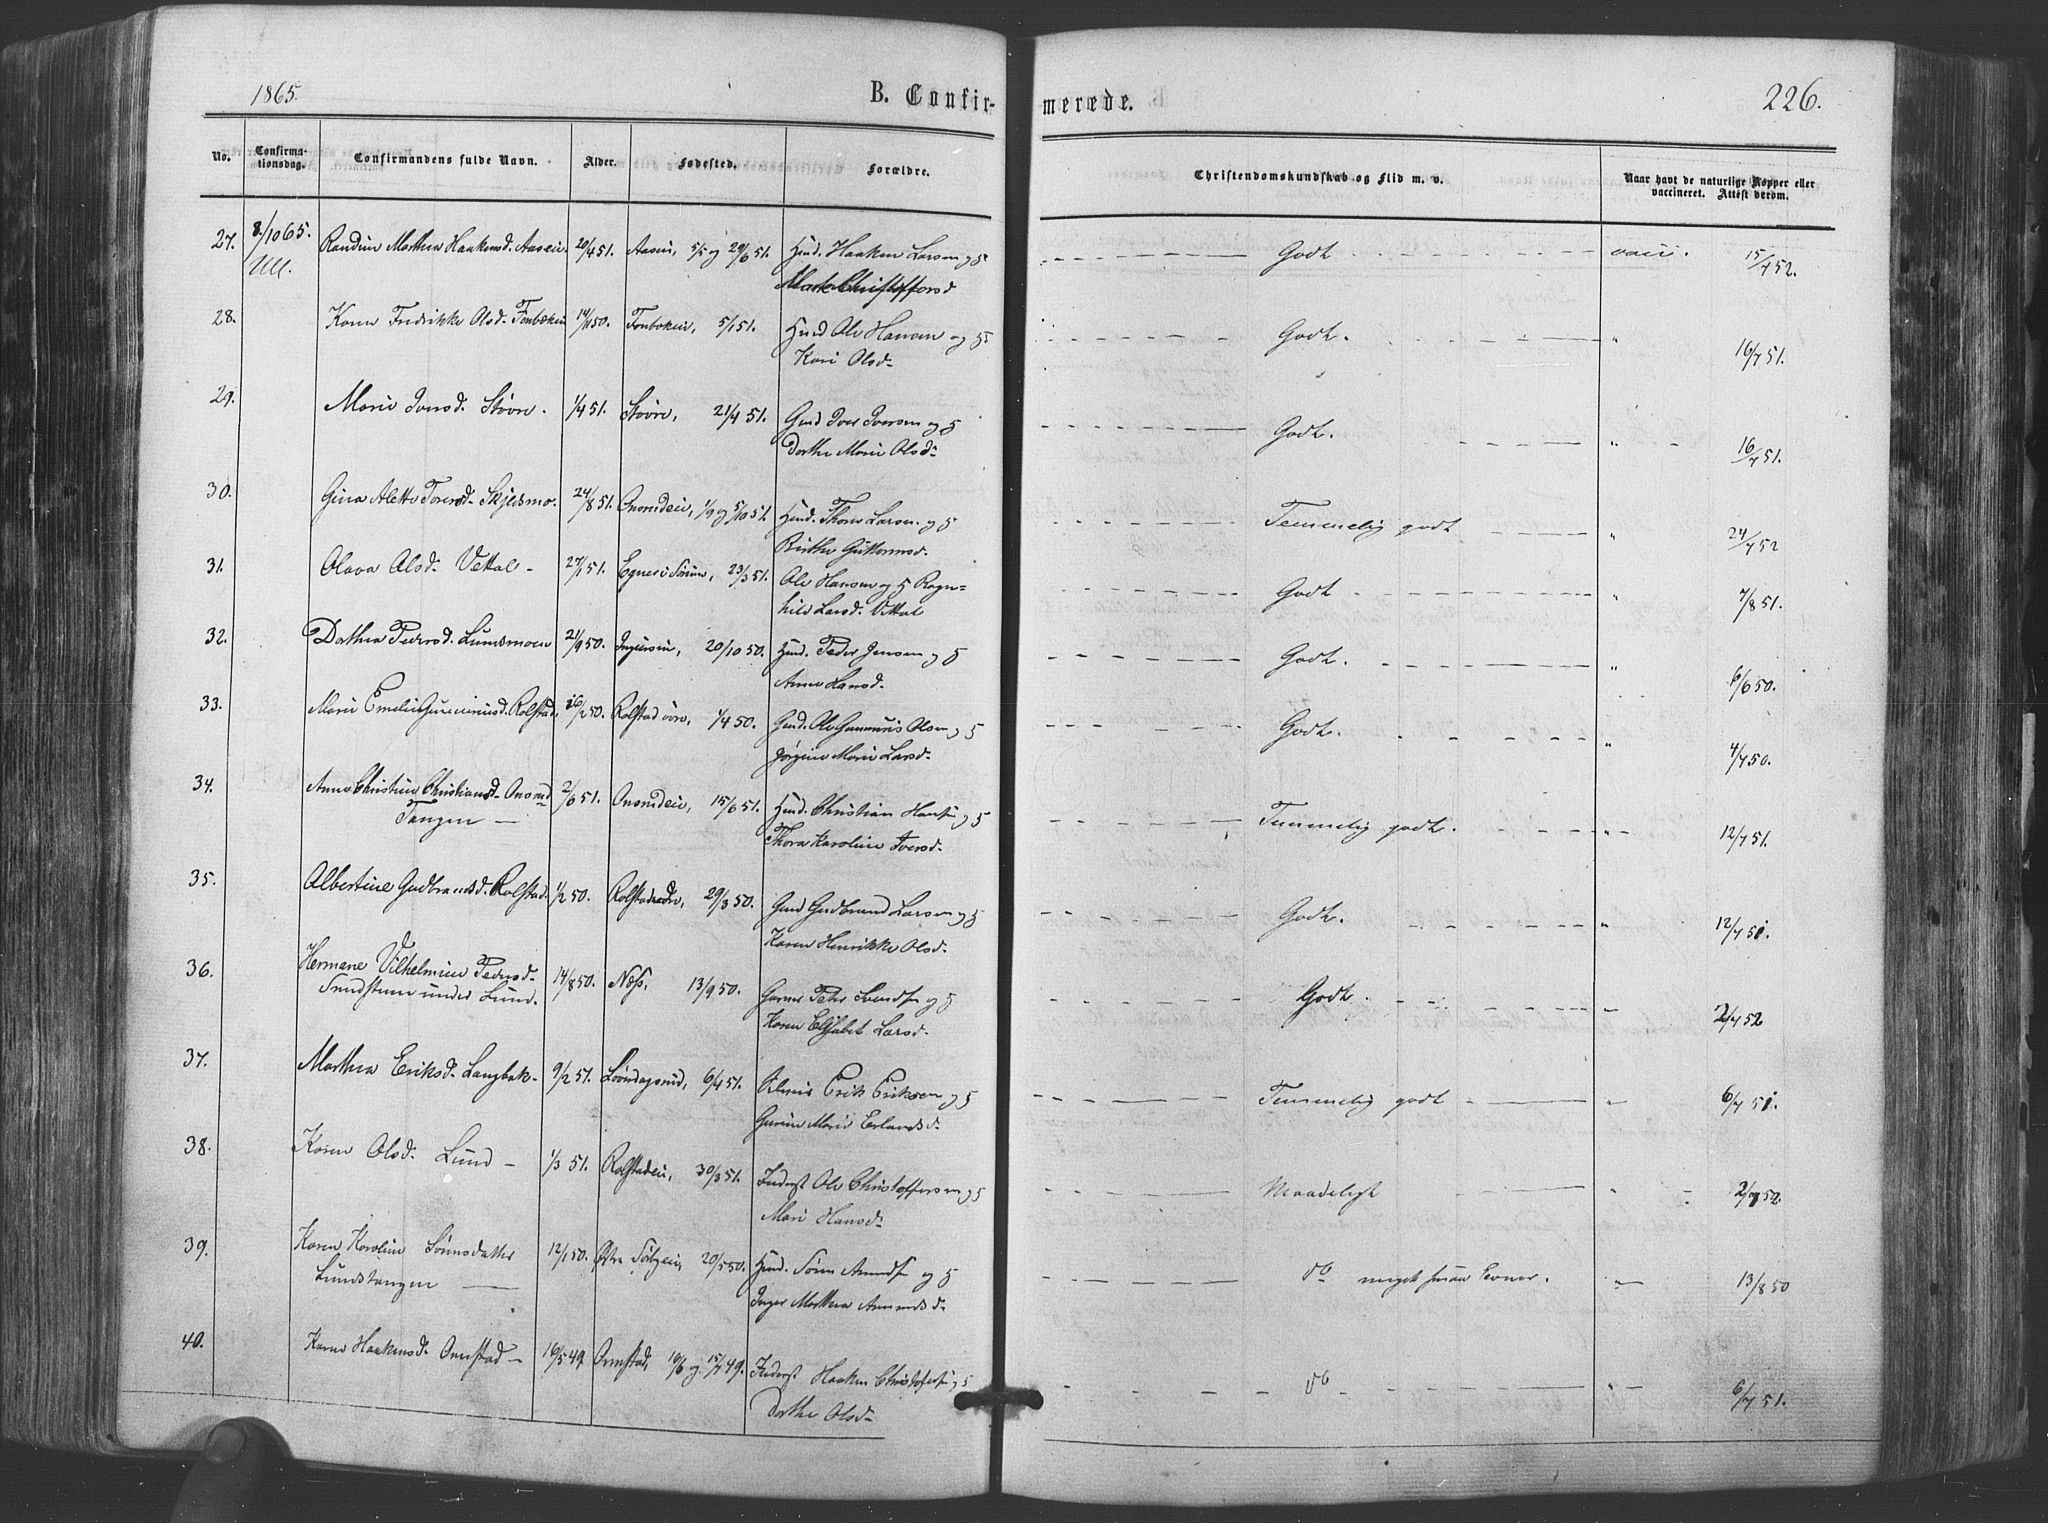 1865. B. Confirmerede. 226.
No. Confirmationsdag. Confirmandens fulde Navn. Alder. Fødested. Forældre. Christendomskundskab og Flid m. v. Naar havt de naturlige Kopper eller vaccineret. Attest derom.
27. 8/10 65. Randine Marthea Haakensd. Aaseie. 20/4 51. Aaseie, 5/5 og 29/6 51. Huusm. Haaken Larsen og H. Godt vacc. 15/7 52.
Ull. Marte Christoffersd
28. Karen Fredrikke Olsd. Fonbækeie 14/1 50. Fonbekeie, 5/1 51. Hmd Ole Hansen og H. Godt. " 16/7 51.
Kari Olsd.
29. Marie Iversd. Støvre. 1/4 51. Støvre, 21/4 51. Gmd Iver Iversen og H Godt. " 16/7 51.
Dorthe Marie Olsd.
30. Gina Alette Toresd. Skjelsmo. 24/8 51. Onsrudeie, 1/9 og 5/10 51. Hmd. Thore Larsen og H Temmelig godt " 24/7 52
Birthe Guttormsd.
31. Olava Olsd. Vettal - 27/1 51. Egneri Sørum, 23/3 51. Ole Hansen og H Ragn- Godt " 7/8 51.
hild Larsd. Vettal
32. Dorthea Pedersd. Lundsmoen 21/9 50. 20/10 50. Hmd. Peder Jensen og H Godt. " 6/6 50.
Anne Larsd.
33. Marie Emilie Gunneriusd. Rolstad, 16/2 50. Rolstad øvre, 1/4 50. Gmd. Ole Gunnerius Olsen og H Godt. " 4/7 50.
Jørgine Marie Larsd.
34. Anne Christine Christiansd. Onsrud 2/6 51. Onsrudeie, 15/6 51. Hmd. Christian Hans. og H Temmelig godt. " 12/7 51.
Tangen - Thora Karoline Iversd.
35. Albertine Gudbransd. Rolstad. 1/2 50. Rolstad nedre, 29/3 50. Gmd Gudbrand Larsen og H Godt. " 12/7 51.
Karen Henrikke Olsd.
36. Hermane Vilhelmine Pedersd. 14/8 50. Næs. 13/9 50. Garver Peder Svends. og H Godt. " 2/7 52
under Lund. Karen Elisabet Larsd.
37. Marthea Eriksd. Langbak - 9/2 51. 6/4 51. Erik Eriksen og H Temmelig godt " 6/7 51.
Gurine Marie Erlandsd.
38. Karen Olsd. Lund - 1/3 51. Rolstadeie, 30/3 51. Inderst Ole Christoffersen og H Maadeligt " 2/7 52.
Mari Hansd.
39. Karen Karoline Sørensdatter 12/1 50. Østre 20/5 50. Hmd. Søren Amunds. og H do meget smaa Evner. " 13/8 50
Lundstangen - Inger Marthea Amundsd.
40. Karen Haakensd. Ormstad - 16/5 49. Ormstad, 10/6 og 15/7 49. Inderst Haaken Christofers. og H do " 6/7 51.
Dorthe Olsd.